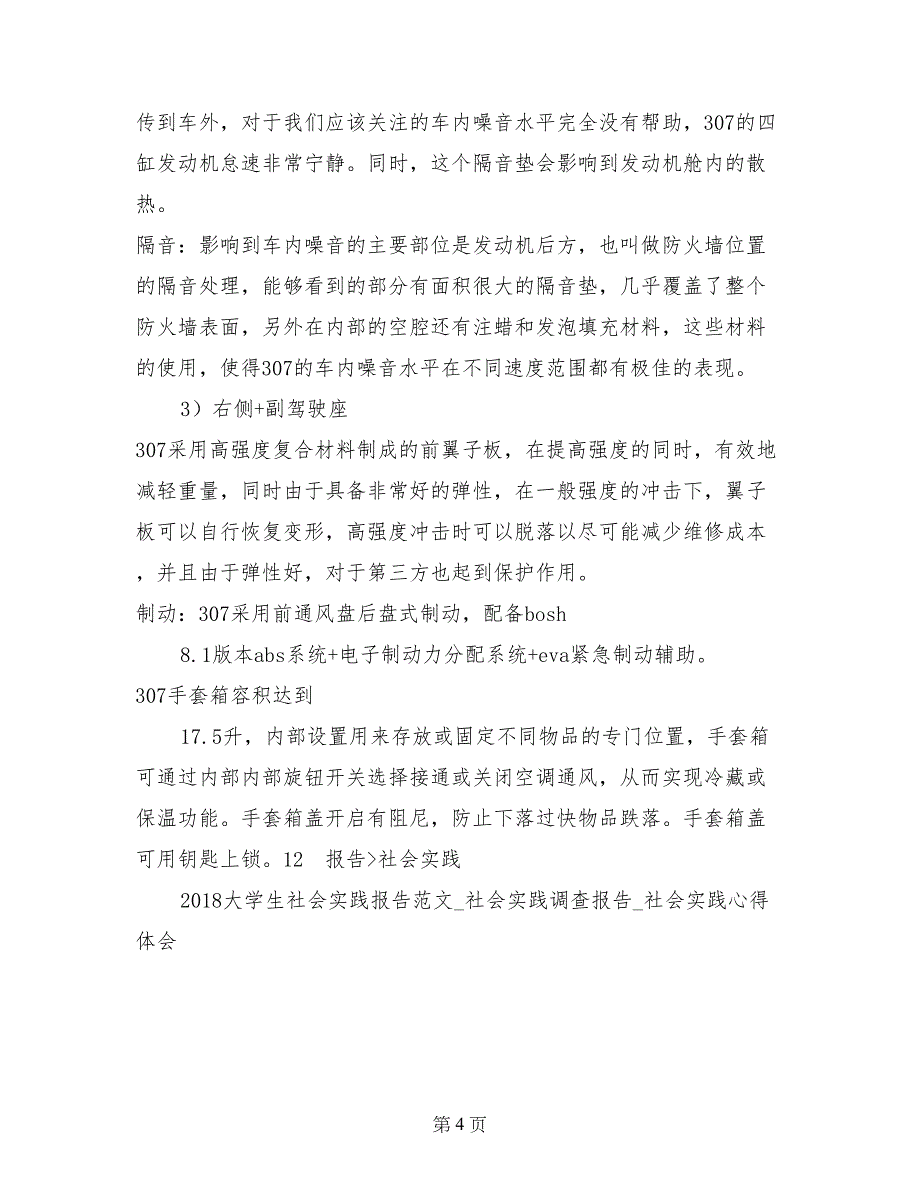 传到车外，对于我们应该关注的车内噪音水平完全没有帮助，307的四
缸发动机怠速非常宁静。同时，这个隔音垫会影响到发动机舱内的散
热。
隔音：影响到车内噪音的主要部位是发动机后方，也叫做防火墙位置
的隔音处理，能够看到的部分有面积很大的隔音垫，几乎覆盖了整个
防火墙表面，另外在内部的空腔还有注蜡和发泡填充材料，这些材料
的使用，使得307的车内噪音水平在不同速度范围都有极佳的表现。
3）右侧+副驾驶座
307采用高强度复合材料制成的前翼子板，在提高强度的同时，有效地
减轻重量，同时由于具备非常好的弹性，在一般强度的冲击下，翼子
板可以自行恢复变形，高强度冲击时可以脱落以尽可能减少维修成本
，并且由于弹性好，对于第三方也起到保护作用。
制动：307采用前通风盘后盘式制动，配备bosh
8.1版本abs系统+电子制动力分配系统+eva紧急制动辅助。
307手套箱容积达到
17.5升，内部设置用来存放或固定不同物品的专门位置，手套箱
可通过内部内部旋钮开关选择接通或关闭空调通风，从而实现冷藏或
保温功能。手套箱盖开启有阻尼，防止下落过快物品跌落。手套箱盖
可用钥匙上锁。12　报告>社会实践
2018大学生社会实践报告范文_社会实践调查报告_社会实践心得
体会
第 4 页